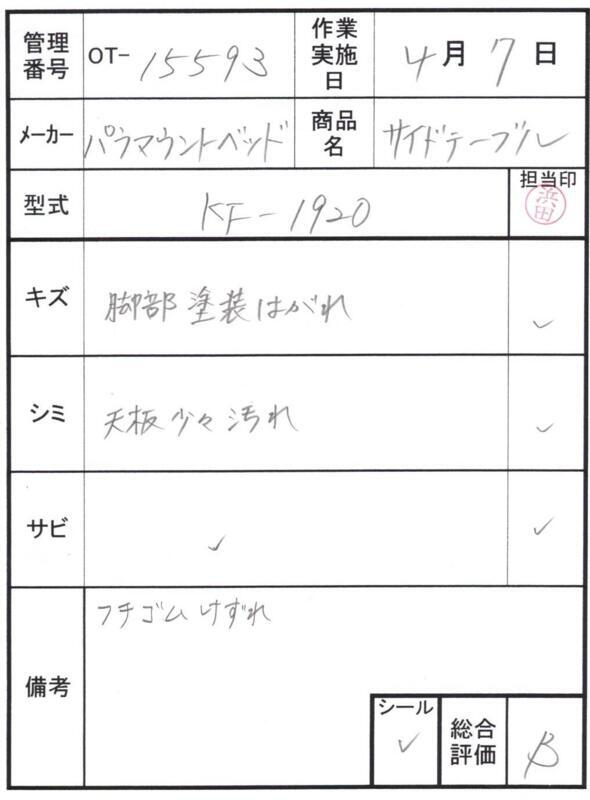 管理番号 OT- 15593 作業実施日 4月7日
メーカー パラマウントベッド 商品名 サイドテーブル
型式 KF-1920 担当印 浜田
キズ 脚部塗装はがれ ✓
シミ 天板少々汚れ ✓
サビ ✓ ✓
備考 フチゴムけずれ
シール ✓ 総合評価 B